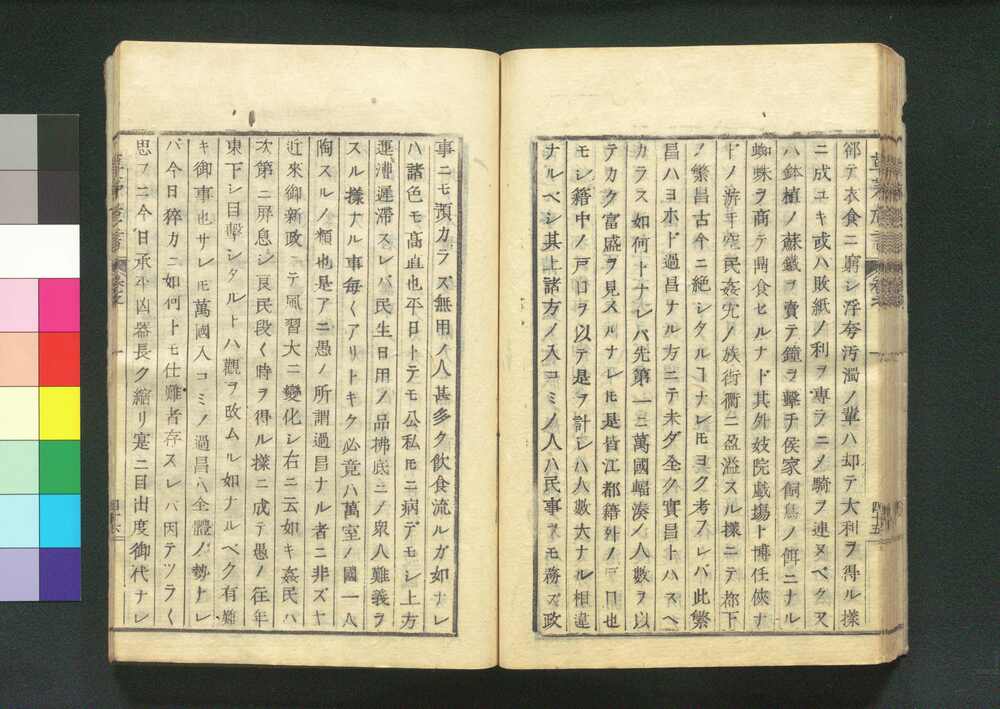 郤テ衣食ニ窮シ浮夸汚濁ノ輩ハ却テ大利ヲ得ル様
ニ成ユキ或ハ敗紙ノ利ヲ専ラニメ騎ヲ連ヌベクヌ
ハ鉢植ノ蘇鐵ヲ賣テ鐘ヲ撃チ侯家飼鳥ノ餌ニナル
蜘蛛ヲ商テ鬥食セルナド其外妓院戯場ト博任俠ナ
ドノ游手 民姦宄ノ族街衢ニ盈溢スル様ニテ祢下
ノ繁昌古今ニ絶シタルヿナレモヨク考フレバ此繁
昌ハヨホド過昌ナル方ニテ未ダ全ク實昌トハスベ
カラス如何トナレバ先第一ニ萬國輻湊ノ人數ヲ以
テカク富盛ヲ見スルナレ𪜈是皆江都籍外ノ 口也
モシ籍中ノ戸口ヲ以テ是ヲ計レハ人數大ナル相違
ナルベシ其上諸方ノ入コミノ人ハ民事ヲモ務ズ政
事ニモ預カラズ無用ノ人甚多ク飲食流ルガ如ナレ
ハ諸色モ高直也平日トテモ公私𪜈ニ病デモシ上方
運漕遲滯スレバ民生日用ノ品拂底ニメ衆人難義ヲ
スル様ナル事毎〱アリトキク必竟ハ萬室ノ國一人
陶スルノ類也是アニ愚ノ所謂過昌ナル者ニ非ズヤ
近來御新政ニテ風習大ニ變化シ右ニ云如キ姦民ハ
次第ニ屏息シ良民段〱時ヲ得ル様ニ成テ愚ノ往年
東下シ目擊シタルトハ觀ヲ改ムル如ナルベク有難
キ御事也サレ𪜈萬國入コミノ過昌ハ全體ノ勢ナレ
バ今日猝カニ如何トモ仕難者存スレバ因テツラ〱
思フニ今日承平凶器長ク縮リ寔ニ目出度御代ナレ
四十五
四十六